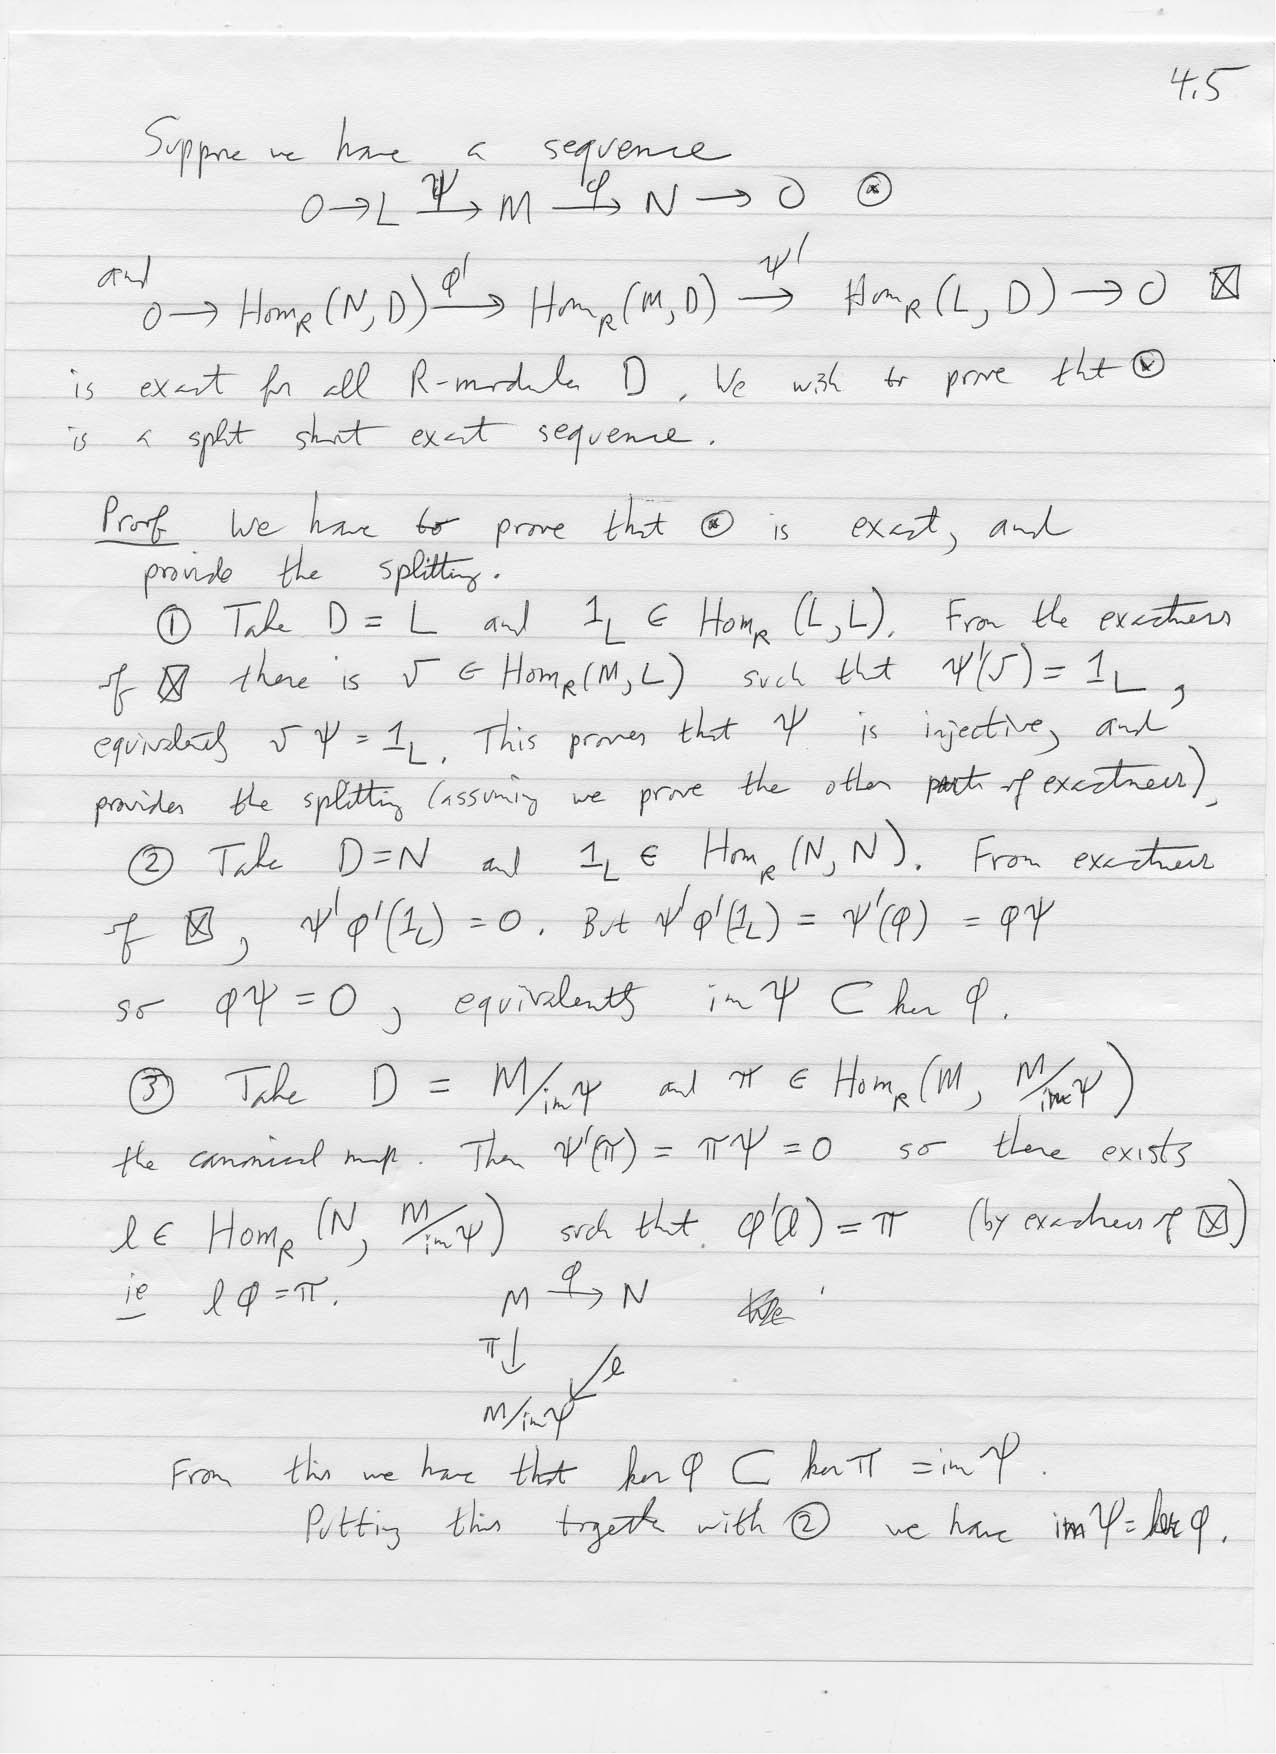 4.5
Suppose we have a sequence
0 → L →ψ M →φ N → 0 ⊛
and
0 → Hom_R (N, D) →φ' Hom_R (M, D) →ψ' Hom_R (L, D) → 0 ⊠
is exact for all R-modules D. We wish to prove tht ⊛
is a split short exact sequence.
Proof We have to prove that ⊛ is exact, and
provide the splitting.
① Take D = L and 1_L ∈ Hom_R (L, L). From the exactness
of ⊠ there is √ ∈ Hom_R (M, L) such that ψ'(√) = 1_L,
equivalently √ψ = 1_L. This proves that ψ is injective, and
provides the splitting (assuming we prove the other parts of exactness).
② Take D = N and 1_L ∈ Hom_R (N, N). From exactness
of ⊠, ψ'φ'(1_L) = 0. But ψ'φ'(1_L) = ψ'(φ) = φψ
so φψ = 0, equivalently im ψ ⊂ ker φ.
③ Take D = M/im ψ and π ∈ Hom_R (M, M/im ψ)
the canonical map. Then ψ'(π) = πψ = 0 so there exists
l ∈ Hom_R (N, M/im ψ) such that φ'(l) = π (by exactness of ⊠)
ie lφ = π. M →φ N
π ↓ ↙ l
M/im ψ
From this we have that ker φ ⊂ ker π = im ψ.
Putting this together with ② we have im ψ = ker φ.